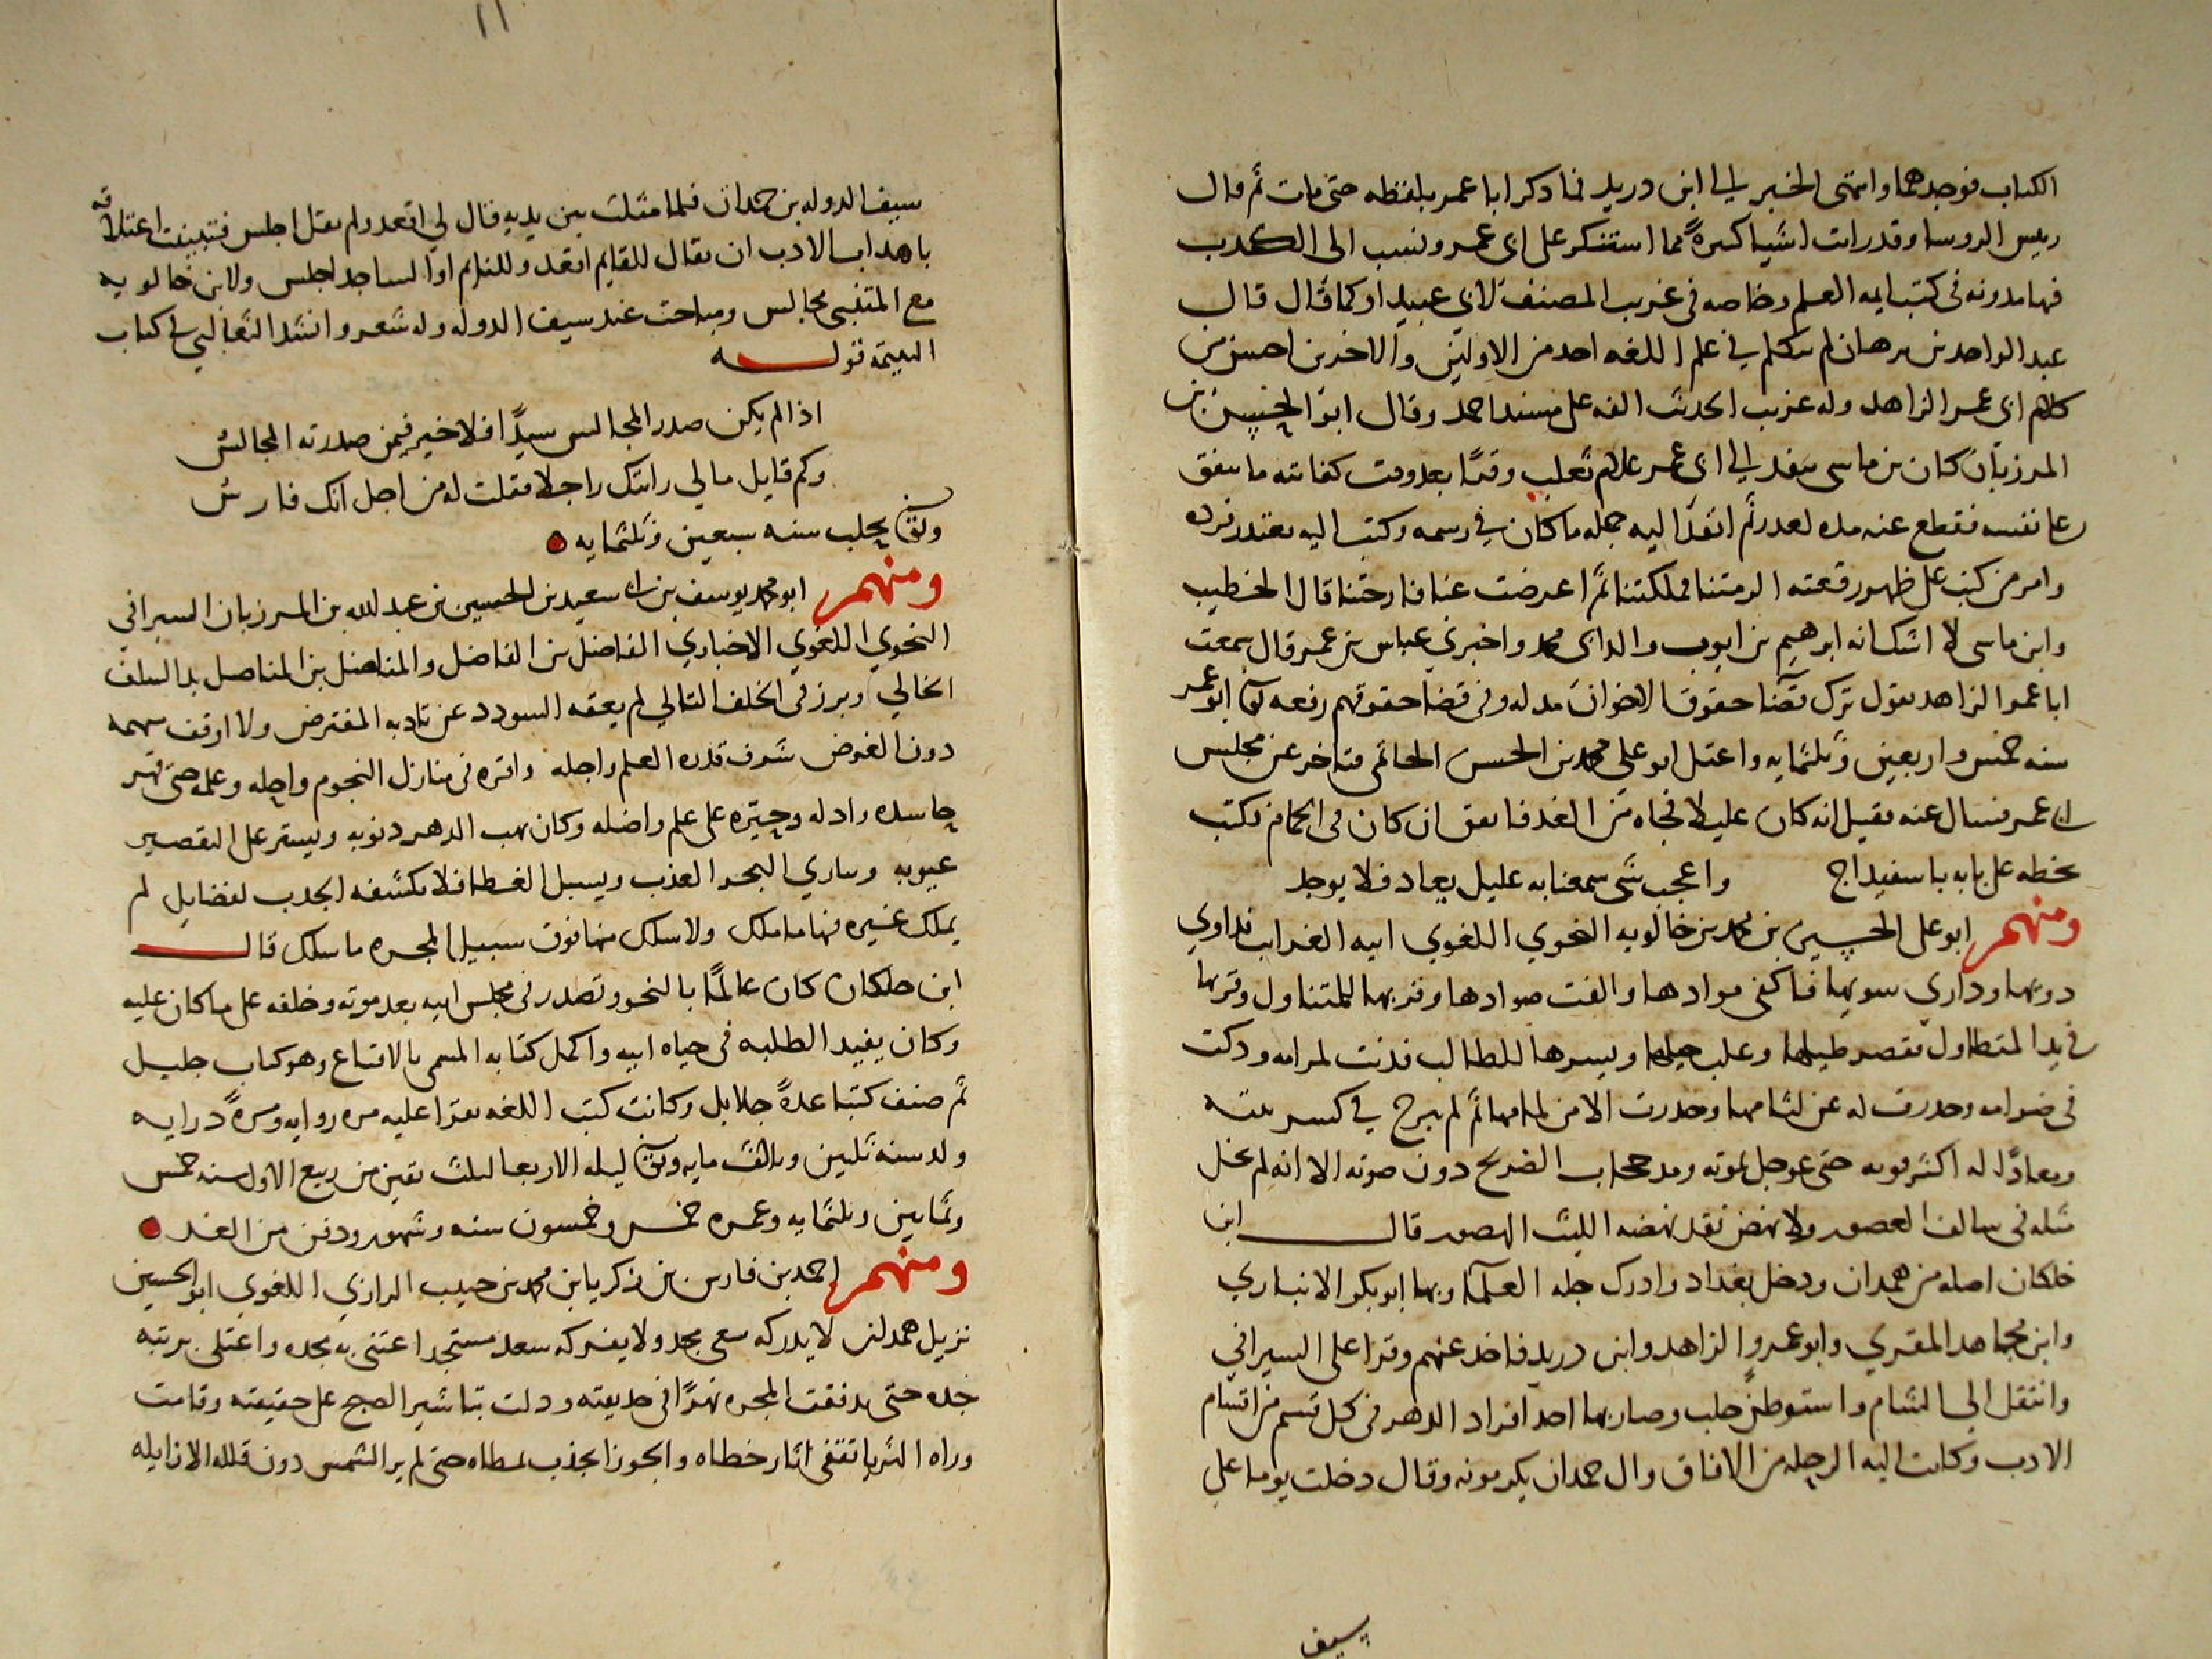 الكتاب فوجدهما وانتهى الخبر الى ابن دريد فما ذكر ابا عمر بلفظه حتى مات ثم قال
رييس الروسا وقد رايت اشيا كثيرة مما استنكر على ابى عمر ونسب الى الكذب
فيها مدونه فى كتب ايمه العلم وخاصه فى غريب المصنف لابى عبيد او كما قال قال
عبد الواحد بن برهان لم يتكلم في علم اللغه احد من الاولين والاخرين احسن من
كلام ابى عمر الزاهد وله غريب الحديث الفه على مسند احمد وقال ابو الحسين بن
المرزبان كان بن ماسى ينفد الى ابى عمر غلام ثعلب وقتا بعد وقت كفايته ما ينفق
على نفسه فقطع عنه مده لعذر ثم انفذ اليه جمله ما كان في رسمه وكتب اليه يعتذر فرده
وامر من كتب على ظهر رقعته اكرمتنا فملكتنا ثم اعرضت عنا فارحتنا قال الخطيب
وابن ماسى لا اشك انه ابرهيم بن ايوب والد ابى محمد واخبرني عباس بن عمر قال سمعت
ابا عمر الزاهد يقول ترك قضا حقوق الاخوان مذله وفى قضا حقوقهم رفعه توفى ابو عمر
سنه خمس واربعين وثلثمايه واعتل ابو على محمد بن الحسن الحاتمى فتاخر عن مجلس
ابى عمر فسال عنه فقيل انه كان عليلا فجاه من الغد فاتفق ان كان فى الحمام فكتب
بخطه على بابه باسفيداج واعجب شى سمعنا به عليل يعاد فلا يوجد
ومنهم ابو على الحسين بن محمد بن خالويه النحوي اللغوي
وفربها للمتناول وقربها
في يد المتطاول وعلب ويسرها للطالب فدنت لمرامه وذكت
فى ضرامه وحدرت له عن لثامها وحذرت الا من لمامها ثم لم يبرح في كسر بيته
حتى عوجل بموته ومد حجاب الضريح دون صوته الا انه لم يخل
مثله فى سالف العصور ولا نهض نقد نهضه الليث الهصور قال ابن
خلكان اصله من همدان ودخل بغداد وادرك جله العلما بها ابو بكر الانباري
وابن مجاهد المقري وابو عمرو الزاهد وابن دريد فاخذ عنهم وقرا على السيرافي
وانتقل الى الشام واستوطن حلب وصار بها احد افراد الدهر فى كل قسم من اقسام
الادب وكانت اليه الرحله من الافاق وال حمدان يكرمونه وقال دخلت يوما على
سيف
١١
سيف الدوله بن حمدان فلما مثلت بين يديه قال لي اقعد ولم يقل اجلس فتبينت اعتلاقه
باهداب الادب ان يقال للقايم اقعد وللنايم او الساجد اجلس ولابن خالويه
مع المتنبى مجالس ومباحث عند سيف الدوله وله شعر وانشد الثعالبي في كتاب
اليتيمه قوله
اذا لم يكن صدر المجالس سيدا فلا خير فيمن صدرته المجالس
وكم قايل مالي رايتك راجلا فقلت له من اجل انك فارس
وتوفى بحلب سنه سبعين وثلثمايه
ومنهم ابو محمد يوسف بن ابى سعيد بن الحسين بن عبد الله بن المرزبان السيرافي
النحوي اللغوي الاخباري الفاضل بن الفاضل والمناضل بن المناضل بد السلف
الخالي وبرز فى الخلف التالي لم يعقه السودد عن تادبه المفترض ولا اوقف سهمه
دون الغرض شرف قدره العلم واجله واقره فى منازل النجوم واحله وعمله حتى قهر
حاسده واذله وحيره على علم واضله وكان يهب الدهر ذنوبه ويستر على التقصير
عيوبه وساري البحر العذب ويسبل الغطا فلا يكشفه الجدب لفضايل لم
يملك غيره فيها ما ملك ولا سلك منها فوق سبيل المجره ما سلك قال
ابن خلكان كان عالما بالنحو وتصدر فى مجلس ابيه بعد موته وخلفه على ما كان عليه
وكان يفيد الطلبه فى حياه ابيه واكمل كتابه المسمى بالاقناع وهو كتاب جليل
ثم صنف كتبا عدة جلايل وكانت كتب اللغه تقرا عليه مره روايه ومرة درايه
ولد سنه ثلثين وثلثمايه وتوفى ليله الاربعا لثلث بقين من ربيع الاول سنه خمس
وثمانين وثلثمايه وعمره خمس وخمسون سنه وشهور ودفن من الغد
ومنهم احمد بن فارس بن زكريا بن محمد بن حبيب الرازي اللغوي ابو الحسين
نزيل همدان لا يدركه سعى مجد ولا يفركه سعد مستجد اعتنى به مجده واعتلى برتبه
جده حتى تدفقت المجره نهرا فى حديقته ودلت تباشير الصبح على حقيقته وقامت
وراه الثريا تقتفى اثار خطاه والجوزا بجذب لمطاه حتى لم ير الشمس دون قلله الازايله